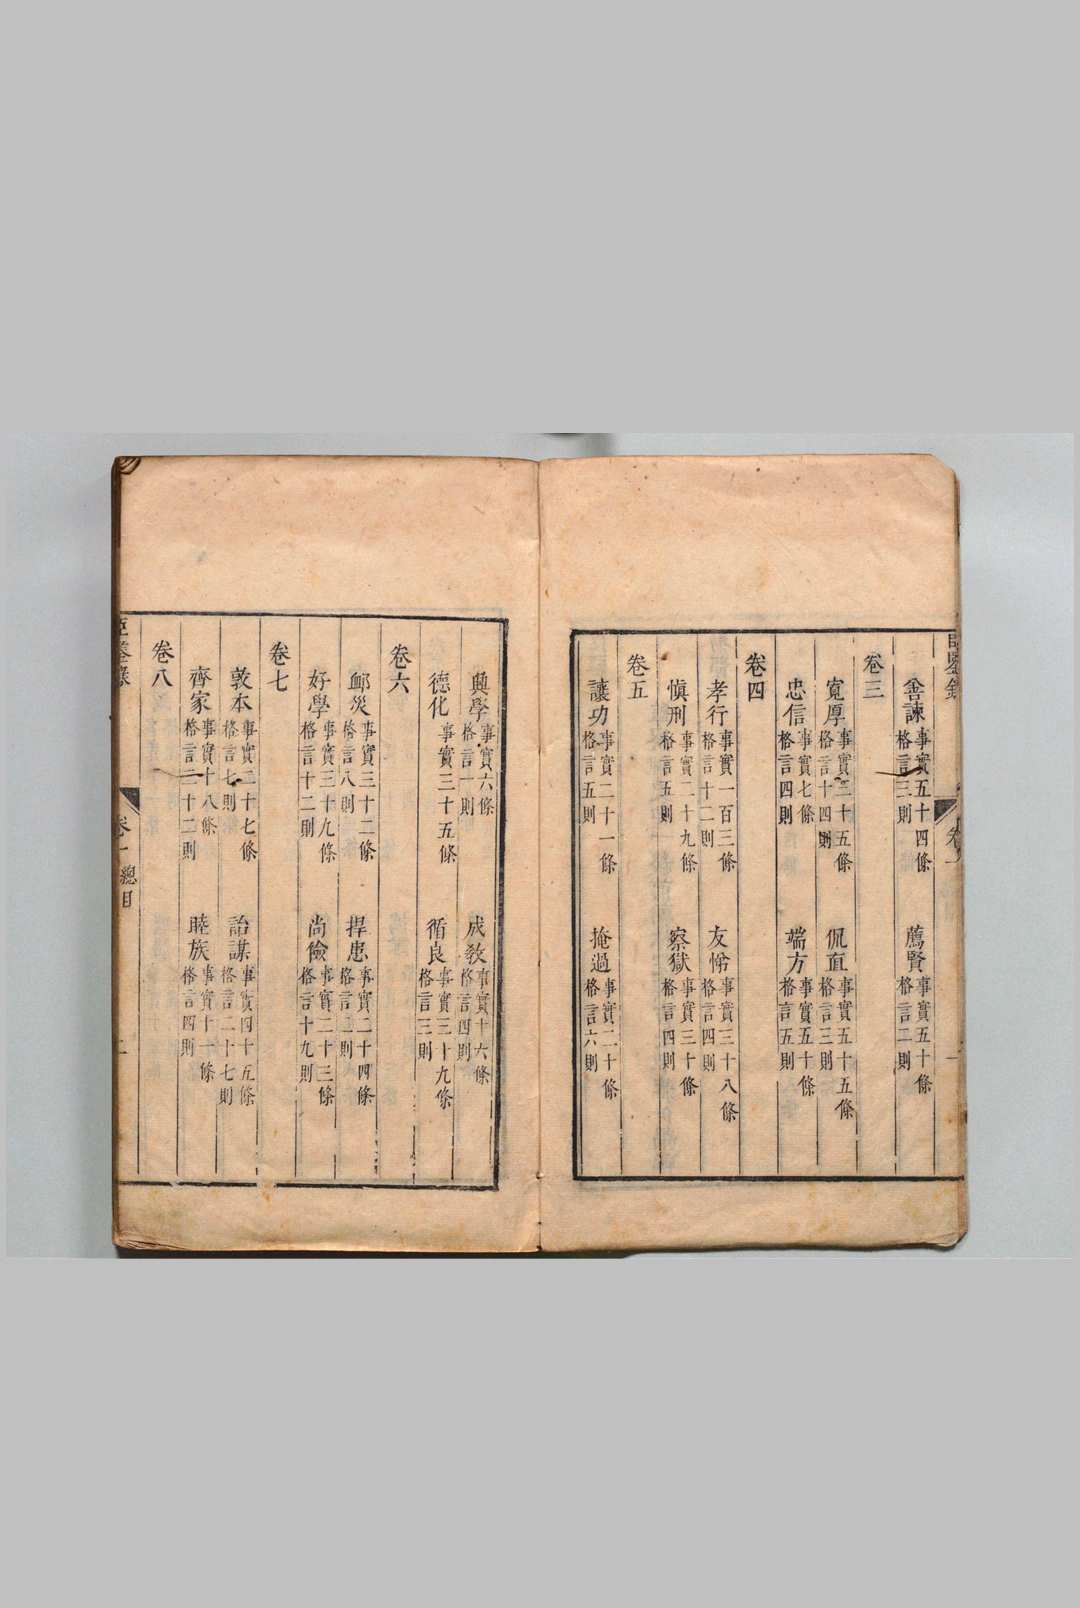 善諫 事實五十四條 格言三則 薦賢 事實五十條 格言二則
卷三
寬厚 事實三十五條 格言十四則 侃直 事實五十五條 格言三則
忠信 事實七條 格言四則 端方 事實五十條 格言五則
卷四
孝行 事實一百三條 格言十二則 友悌 事實三十八條 格言四則
慎刑 事實二十九條 格言五則 察獄 事實三十條 格言四則
卷五
讓功 事實二十一條 格言五則 掩過 事實二十條 格言六則
興學 事實六條 格言一則 成教 事實十六條 格言四則
德化 事實三十五條 循良 事實三十九條 格言三則
卷六
䘏災 事實三十二條 格言八則 捍患 事實二十四條 格言二則
好學 事實三十九條 格言十二則 尚儉 事實二十三條 格言十九則
卷七
敦本 事實二十七條 格言七則 詒謀 事實四十五條 格言二十七則
齊家 事實十八條 格言二十二則 睦族 事實十一條 格言四則
卷八
臣鑒錄 卷一 總目 二